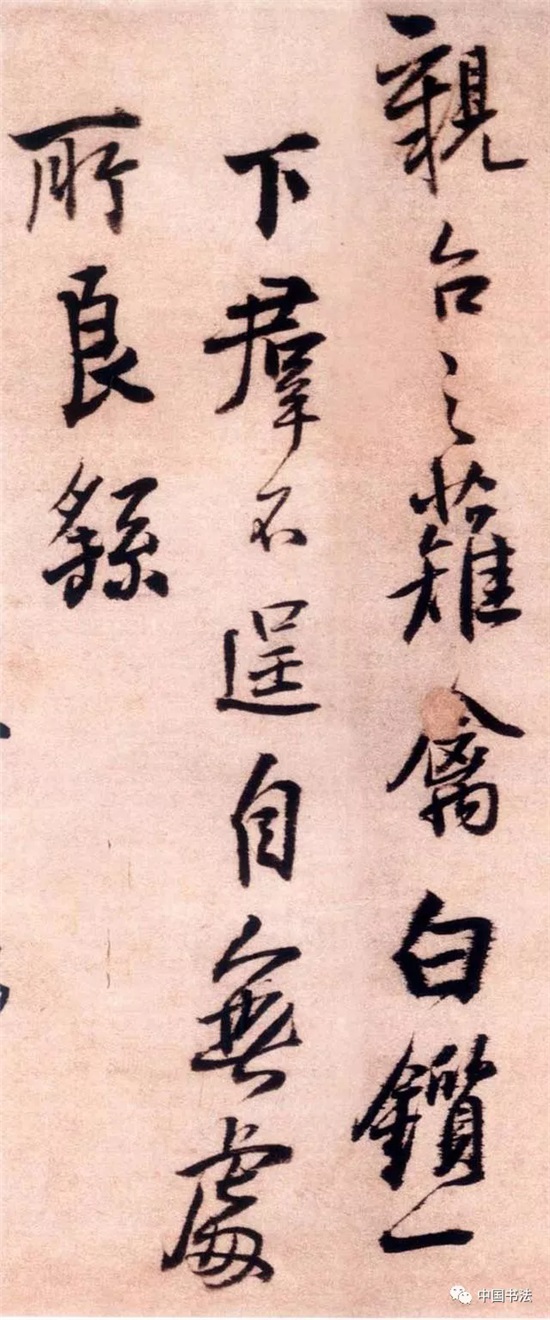 親台之薙禽白鑽一
下羣不逞自無處
所良繇
中国书法